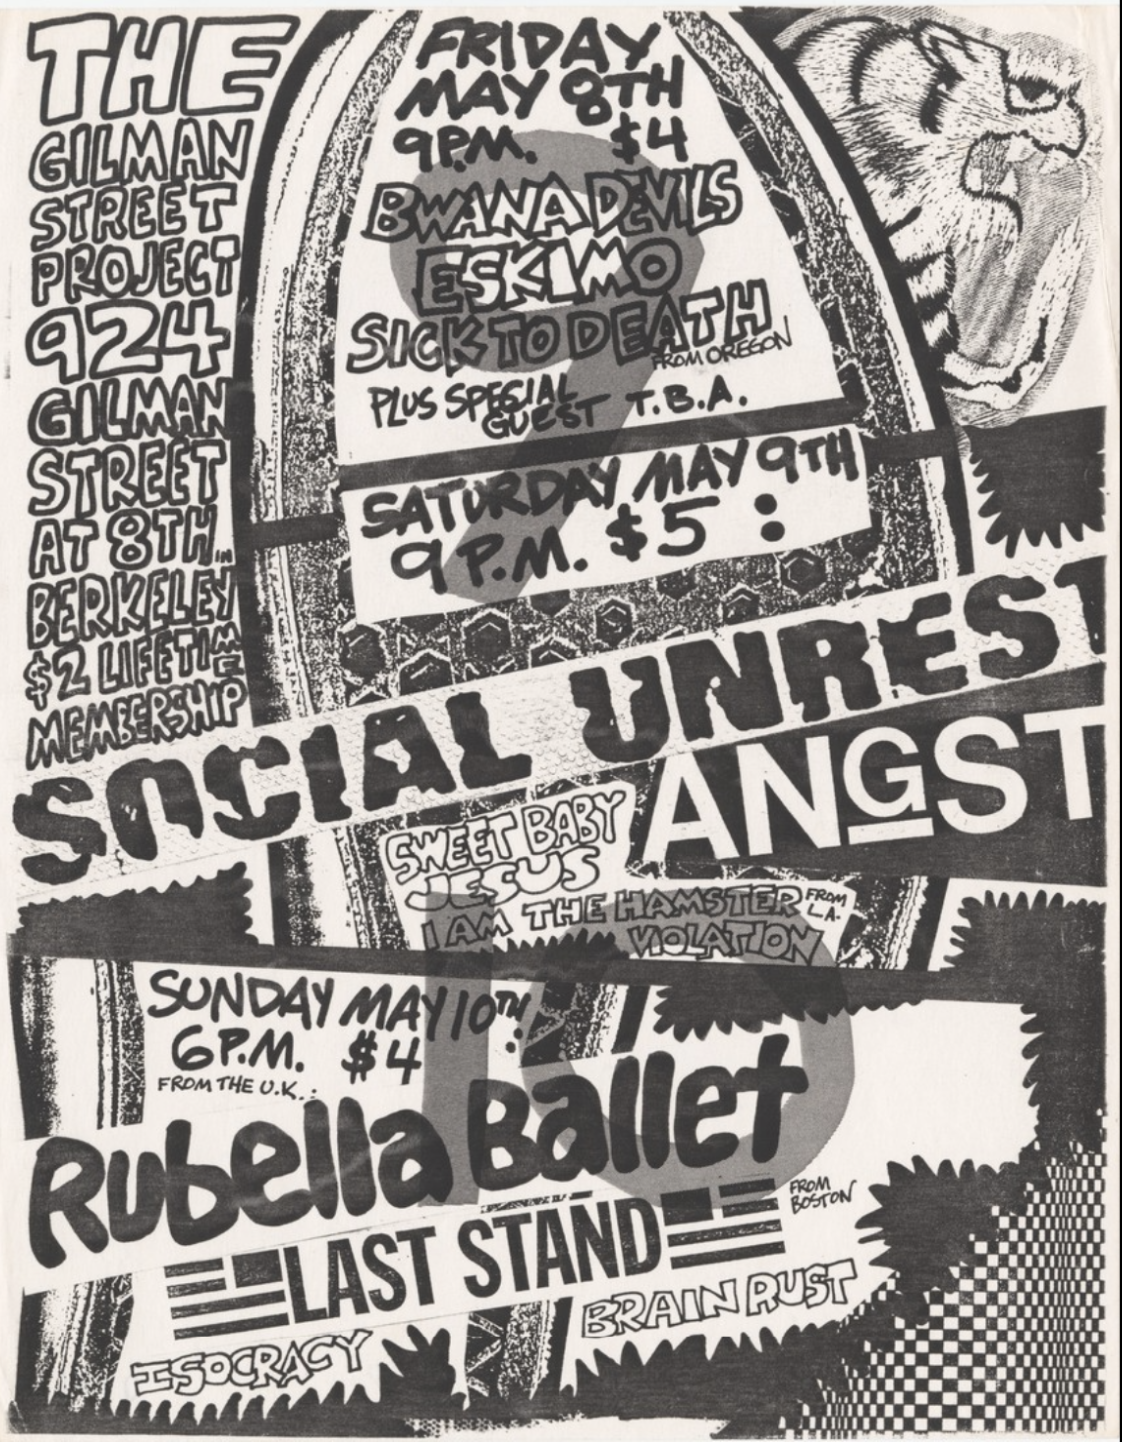 THE
GILMAN
STREET
PROJECT
924
GILMAN
STREET
AT 8TH IN
BERKELEY
$2 LIFETIME
MEMBERSHIP
FRIDAY
MAY 8TH
9P.M. $4
BWANA DEVILS
ESKIMO
SICK TO DEATH
FROM OREGON
PLUS SPECIAL
GUEST T.B.A.
SATURDAY MAY 9TH
9 P.M. $5 :
SOCIAL UNREST
ANGST
SWEET BABY
JESUS
I AM THE HAMSTER
FROM
L.A.
VIOLATION
SUNDAY MAY 10TH:
6 P.M. $4
FROM THE U.K.:
Rubella Ballet
LAST STAND
FROM
BOSTON
BRAIN RUST
ISOCRACY